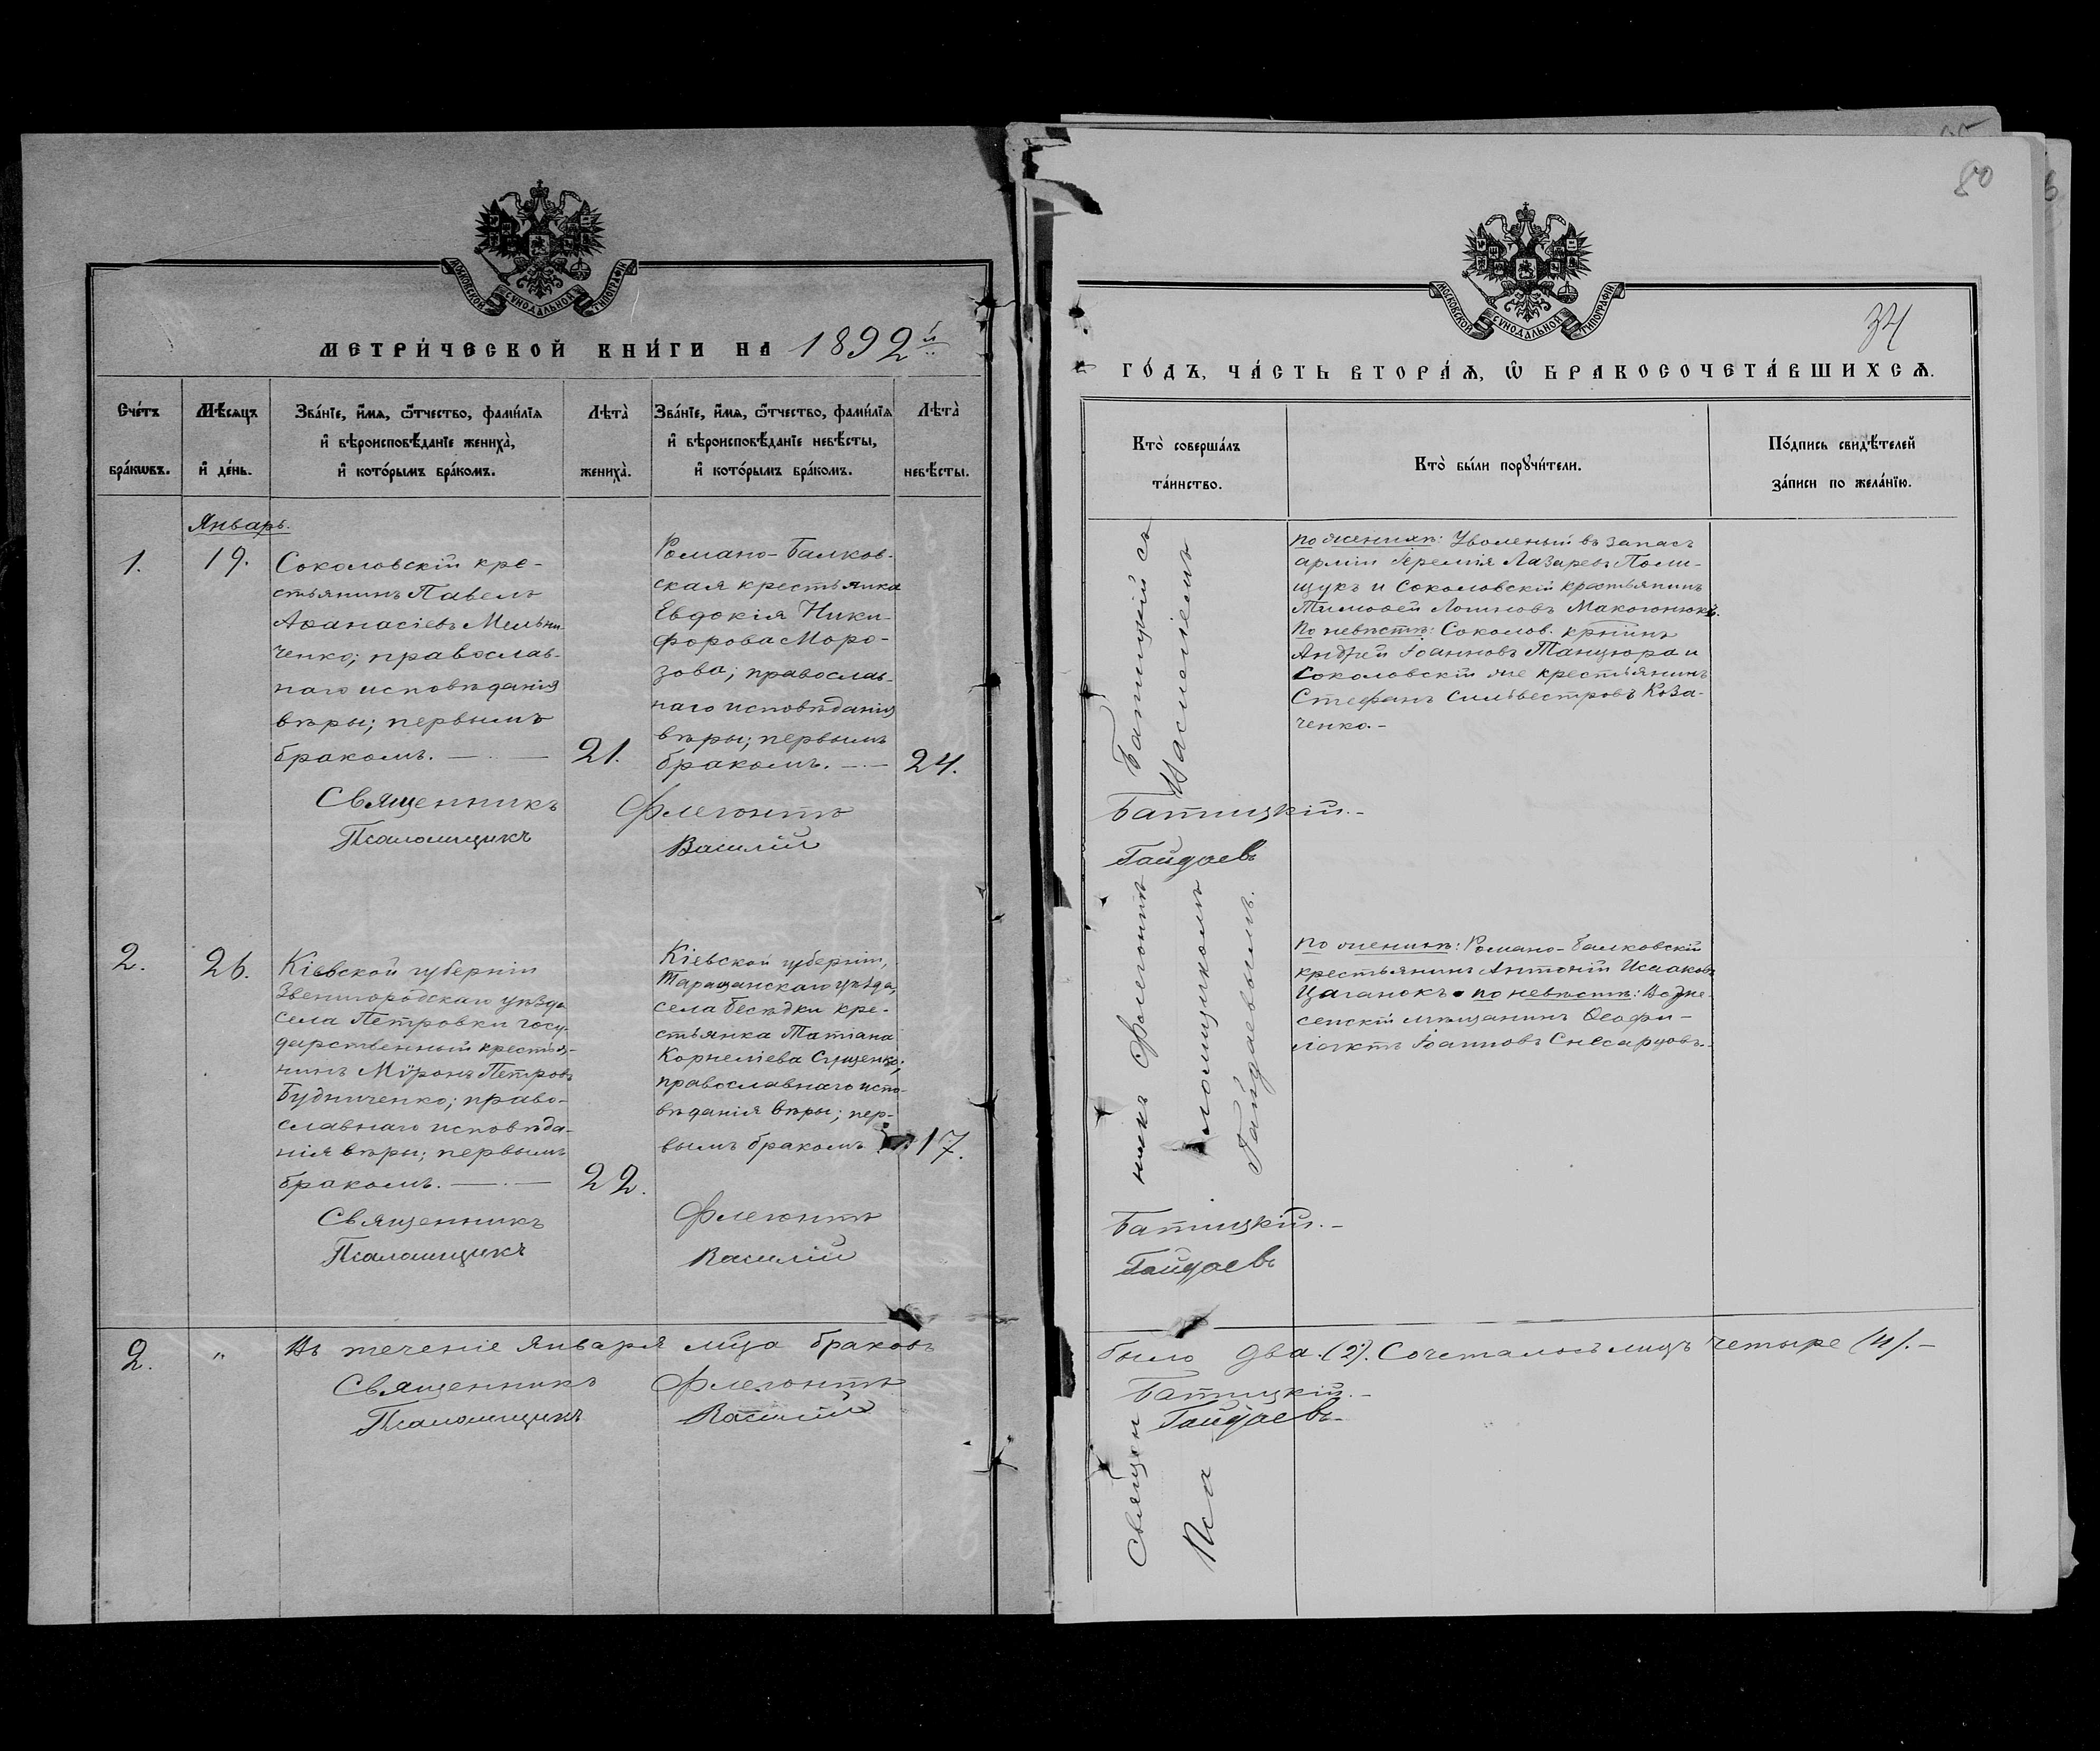 80
МОСКОВСКОЙ СѴНОДАЛЬНОЙ ТИПОГРАФІИ
МЕТРИ́ЧЕСКОЙ КНИ́ГИ НА 1892й
Сче́тъ бра́кѡвъ.
Мѣ́сяцъ и҆ де́нь.
Зва́нїе, и҆́мѧ, ѻ҆́тчество, фами́лїѧ
и҆ вѣроисповѣ́данїе жениха̀,
и҆ кото́рымъ бра́комъ.
Лѣта̀ жениха̀.
Зва́нїе, и҆́мѧ, ѻ҆́тчество, фами́лїѧ
и҆ вѣроисповѣ́данїе невѣ́сты,
и҆ кото́рымъ бра́комъ.
Лѣта̀ невѣ́сты.
Январь.
1.
19.
Соколовскій кре-
стьянинъ Павелъ
Аѳанасіевъ Мельни-
ченко; православ-
наго исповѣданія
вѣры; первымъ
бракомъ.
21.
Романо-Балков-
ская крестьянка
Евдокія Ники-
форова Моро-
зова; православ-
наго исповѣданія
вѣры; первымъ
бракомъ.
24.
Священникъ Флегонтъ
Псаломщикъ Василій
2.
26.
Кіевской губерніи
Звенигородскаго уѣзда
села Петровки госу-
дарственный крестья-
нинъ Мѵронъ Петровъ
Будниченко; право-
славнаго исповѣда-
нія вѣры; первымъ
бракомъ.
22.
Кіевской губерніи,
Таращанскаго уѣзда,
села Бесѣдки кре-
стьянка Татіана
Корнеліева Сущенко;
православнаго испо-
вѣданія вѣры; пер-
вымъ бракомъ.
17.
Священникъ Флегонтъ
Псаломщикъ Василій
2.
"
Въ теченіе Января мѣца браковъ
Священникъ Флегонтъ
Псаломщикъ Василій
МОСКОВСКОЙ СѴНОДАЛЬНОЙ ТИПОГРАФІИ
34
ГО́ДЪ, ЧА́СТЬ ВТОРА́Ѧ, Ѽ БРАКОСОЧЕТА́ВШИХСѦ.
Кто̀ соверша́лъ
та́инство.
Кто̀ бы́ли порꙋчи́тели.
По́дпись свидѣ́телей
за́писи по жела́нїю.
Священникъ Флегонтъ Батицкій съ
Псаломщикомъ Василіемъ
Гайдаевымъ.
по женихѣ: Уволеный въ запасъ
арміи Іеремія Лазаревъ Поли-
щукъ и Соколовскій крестьянинъ
Тимоѳей Логиновъ Макогонюкъ.
По невѣстѣ: Соколов. крнинъ
Андрей Іоанновъ Танцюра и
Соколовскій же крестьянинъ
Стефанъ Сильвестровъ Коза-
ченко.-
Батицкій.-
Гайдаевъ
по женихѣ: Романо-Балковскій
крестьянинъ Антоній Исааковъ
Цаганокъ. по невѣстѣ: Возне-
сенскій мѣщанинъ Ѳеофи-
лактъ Іоанновъ Снесарцовъ.
Батицкій.-
Гайдаевъ
было два.(2). Сочеталось лицъ четыре (4).-
Батицкій.-
Гайдаевъ-